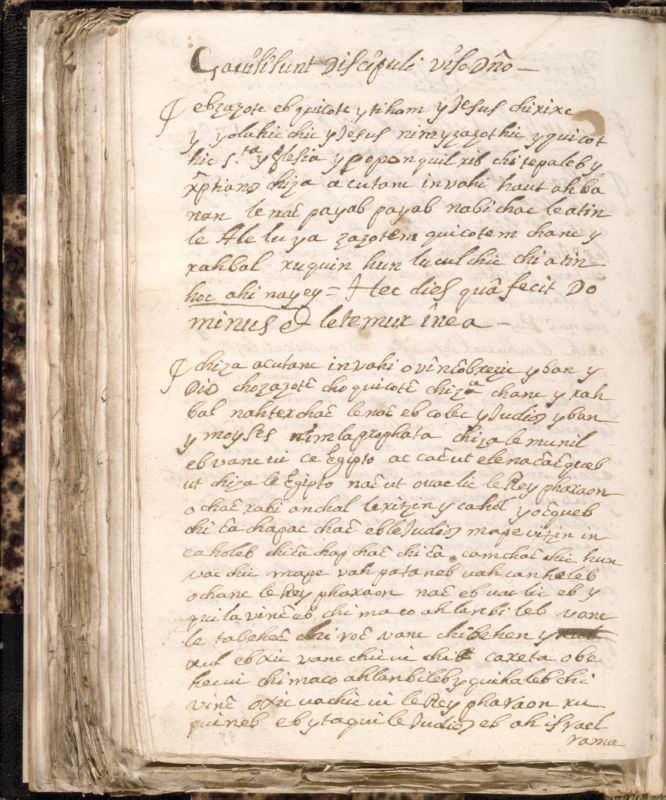 Gauisi sunt Discipuli viso Dño —
ebzazote eb quicote ytiham y Jesus chirixc
y yolahic chic y Jesus nimyzazothic yquicot
hic s.ta yglesia y popon quil xib chitepaleb y
xp̃tiano chiza acutanc invahi haut ahba
nan le naē payab payab nabichac leatin
le Aleluya zazotem quicotem chanc y
rahbal xuquin hun luculchic chi atin
hoc ahi nayey = Hec dies quã fecit Do
minus et letemur in ea —
chiza acutanc invahi y ban y
Dios chozazotē choquicotē chiza chanc y rah
bal nahterchaē le naē eb colec y Judios y ban
y moyses nimla propheta chiza le munil
eb vanc vi ce Egipto
ut chiza le Egipto naē ut ovac lic le Rey pharaon
ochaē rabi anchal lexitzin y cahol
chi ēa chapac chaē eb le Judios mape vitzin in
caholeb chiēa chap chaē chi ēa camchaē chic hun
vac chic mape vah pataneb vah canholeb
ochanc le Rey pharaon naē eb vac lic eb y
quila vinē eb chi maco ahlanbileb vanc
le tabeheē chi roē vanc chibehen y
xul eb xic vanc chic vi chi caxeta obe
hecui chimaco ahlanbileb y quihaleb chic
vinē oxic vachic vi le Rey pharaon xu
quineb eb y taqui le Judios eb ah israel
rama